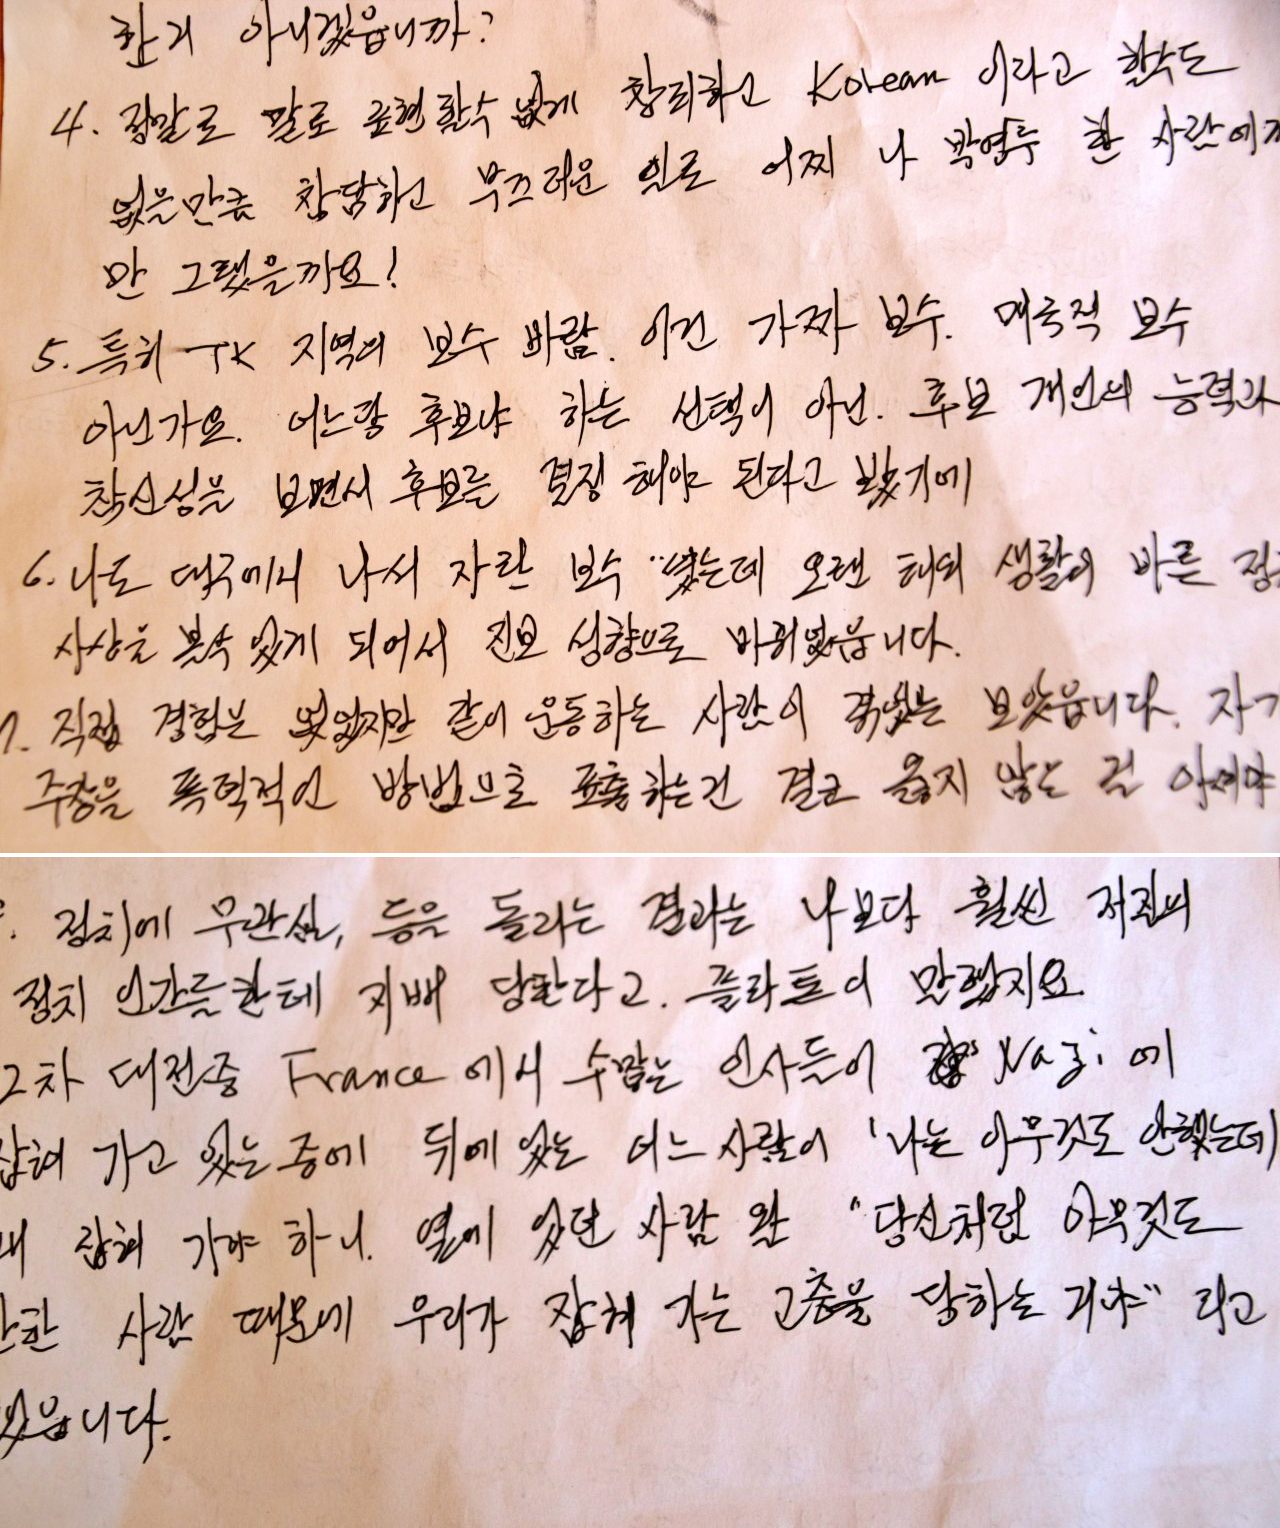 한거 아니겠읍니까?
4. 정말로 말로 표현 할수 없게 창피하고 Korean 이라고 할수도
없을만큼 참담하고 부끄러운 일로 어찌 나 박영두 한 사람에게
만 그랬을까요!
5. 특히 TK 지역의 보수 바람. 이건 가짜 보수. 매국적 보수
아닌가요. 어느당 후보냐 하는 선택이 아닌. 후보 개인의 능력과
참신성을 보면서 후보를 결정 해야 된다고 봤기에
6. 나도 대구에서 나서 자란 보수 였는데 오랜 해외 생활의 바른
사상을 볼수 있게 되어서 진보 성향으로 바뀌었읍니다.
7. 직접 경험은 없었지만 같이 운동하는 사람이 겪었는 보았읍니다. 자기
주장을 폭력적인 방법으로 표출하는건 결코 옳지 않는 걸
정치에 무관심, 등을 돌리는 결과는 나보다 훨씬 저질의
정치 인간들한테 지배 당한다고. 플라톤이 말했지요
2차 대전중 France 에서 수많은 인사들이 Nazi 에
잡혀 가고 있는 중에 뒤에 있는 어느 사람이 '나는 아무것도 안했는데
왜 잡혀 가야 하니. 옆에 있던 사람 왈 "당신처럼 아무것도
안한 사람 때문에 우리가 잡혀 가는 고충을 당하는 거야" 라고
읍니다.